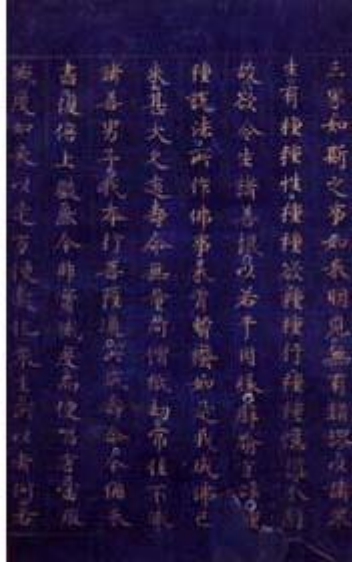 三界如斯之事如来明見無有錯謬以諸衆
生有種種性種種欲種種行種種憶想分別
故欲令生諸善根以若干因縁譬喻言辞種
種説法所作佛事未曾暫癈如是我成佛已
来甚大久遠壽命無量阿僧祇劫常住不滅
諸善男子我本行菩薩道所成壽命今猶未
盡復倍上數然今非實滅度而便唱言當取
滅度如来以是方便教化衆生所以者何若